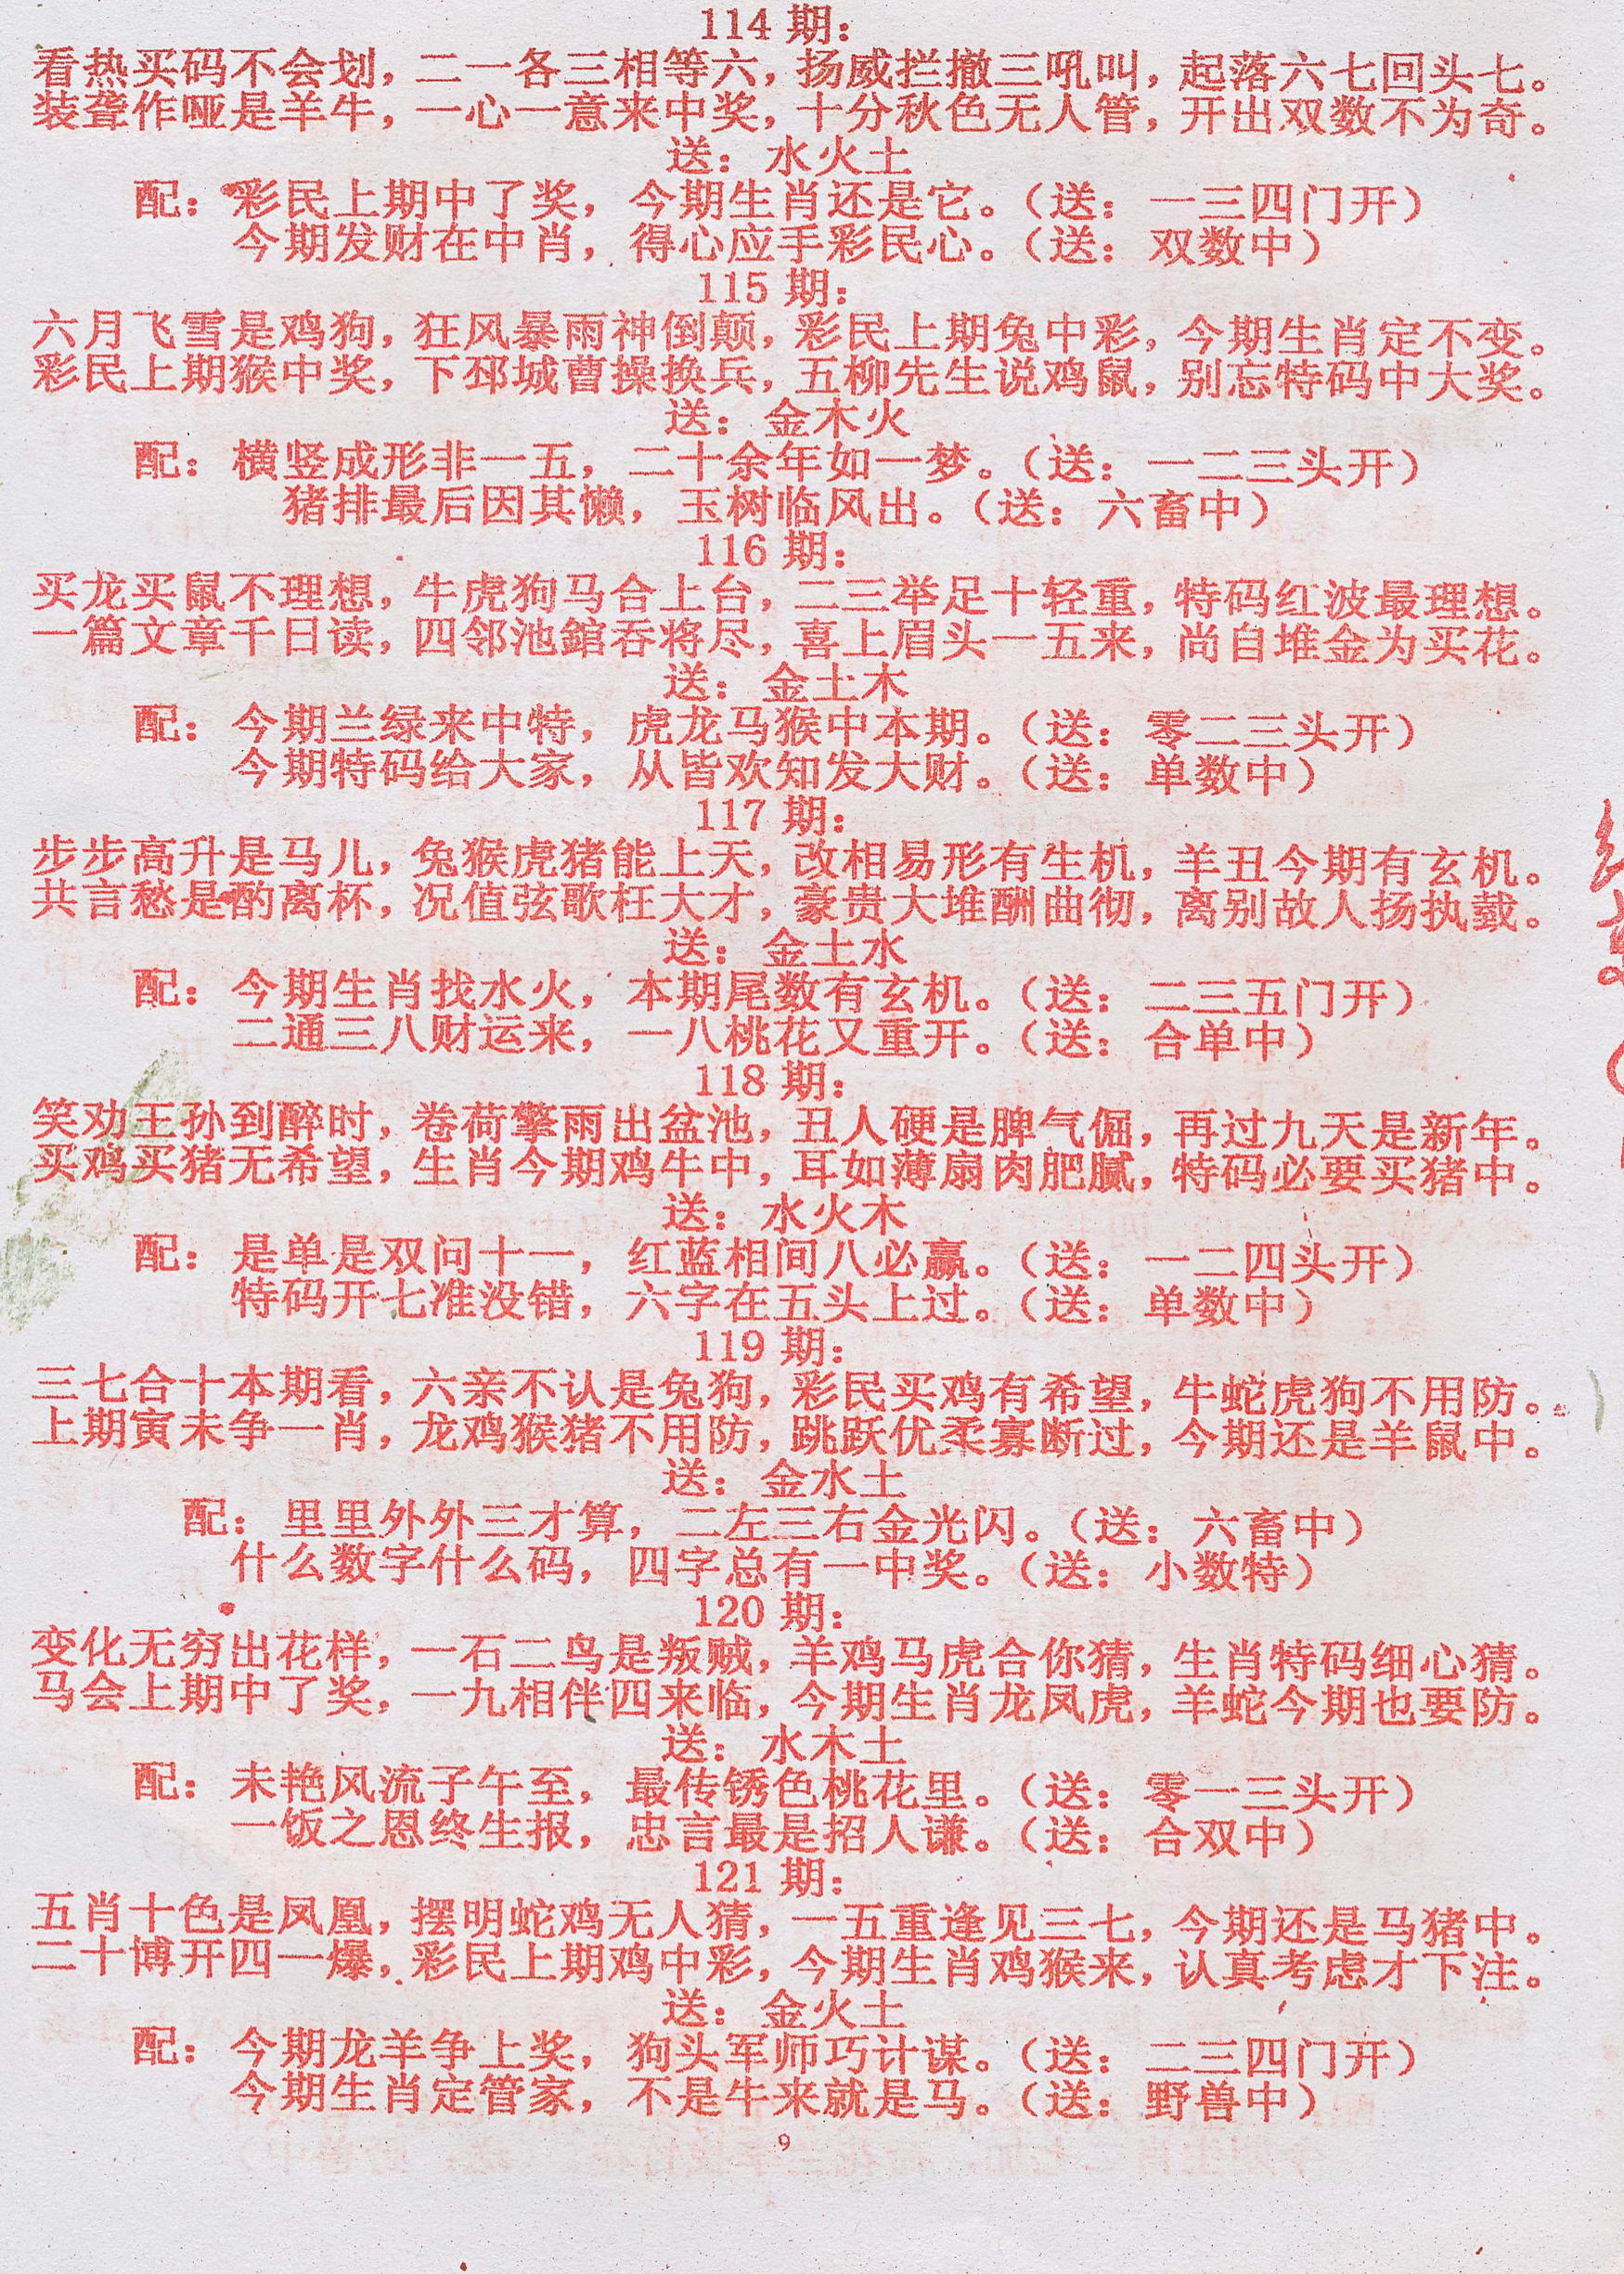 114 期：
看热买码不会划，二一各三相等六，扬威拦撤三吼叫，起落六七回头七。
装聋作哑是羊牛，一心一意来中奖，十分秋色无人管，开出双数不为奇。
送：水火土
配：彩民上期中了奖，今期生肖还是它。（送：一三四门开）
今期发财在中肖，得心应手彩民心。（送：双数中）
115 期：
六月飞雪是鸡狗，狂风暴雨神倒颠，彩民上期兔中彩，今期生肖定不变。
彩民上期猴中奖，下邳城曹操换兵，五柳先生说鸡鼠，别忘特码中大奖。
送：金木火
配：横竖成形非一五，二十余年如一梦。（送：一二三头开）
猪排最后因其懒，玉树临风出。（送：六畜中）
116 期：
买龙买鼠不理想，牛虎狗马合上台，二三举足十轻重，特码红波最理想。
一篇文章千日读，四邻池錧吞将尽，喜上眉头一五来，尚自堆金为买花。
送：金土木
配：今期兰绿来中特，虎龙马猴中本期。（送：零二三头开）
今期特码给大家，从皆欢知发大财。（送：单数中）
117 期：
步步高升是马儿，兔猴虎猪能上天，改相易形有生机，羊丑今期有玄机。
共言愁是酌离杯，况值弦歌枉大才，豪贵大堆酬曲彻，离别故人扬执鼓。
送：金土水
配：今期生肖找水火，本期尾数有玄机。（送：二三五门开）
二通三八财运来，一八桃花又重开。（送：合单中）
118 期：
笑劝王孙到醉时，卷荷擎雨出盆池，丑人硬是脾气倔，再过九天是新年。
买鸡买猪无希望，生肖今期鸡牛中，耳如薄扇肉肥腻，特码必要买猪中。
送：水火木
配：是单是双问十一，红蓝相间八必赢。（送：一二四头开）
特码开七准没错，六字在五头上过。（送：单数中）
119 期：
三七合十本期看，六亲不认是兔狗，彩民买鸡有希望，牛蛇虎狗不用防。
上期寅未争一肖，龙鸡猴猪不用防，跳跃优柔寡断过，今期还是羊鼠中。
送：金水土
配：里里外外三才算，二左三右金光闪。（送：六畜中）
什么数字什么码，四字总有一中奖。（送：小数特）
120 期：
变化无穷出花样，一石二鸟是叛贼，羊鸡马虎合你猜，生肖特码细心猜。
马会上期中了奖，一九相伴四来临，今期生肖龙凤虎，羊蛇今期也要防。
送：水木土
配：未艳风流子午至，最传锈色桃花里。（送：零一三头开）
一饭之恩终生报，忠言最是招人谦。（送：合双中）
121 期：
五肖十色是凤凰，摆明蛇鸡无人猜，一五重逢见三七，今期还是马猪中。
二十博开四一爆，彩民上期鸡中彩，今期生肖鸡猴来，认真考虑才下注。
送：金火土
配：今期龙羊争上奖，狗头军师巧计谋。（送：二三四门开）
今期生肖定管家，不是牛来就是马。（送：野兽中）
9